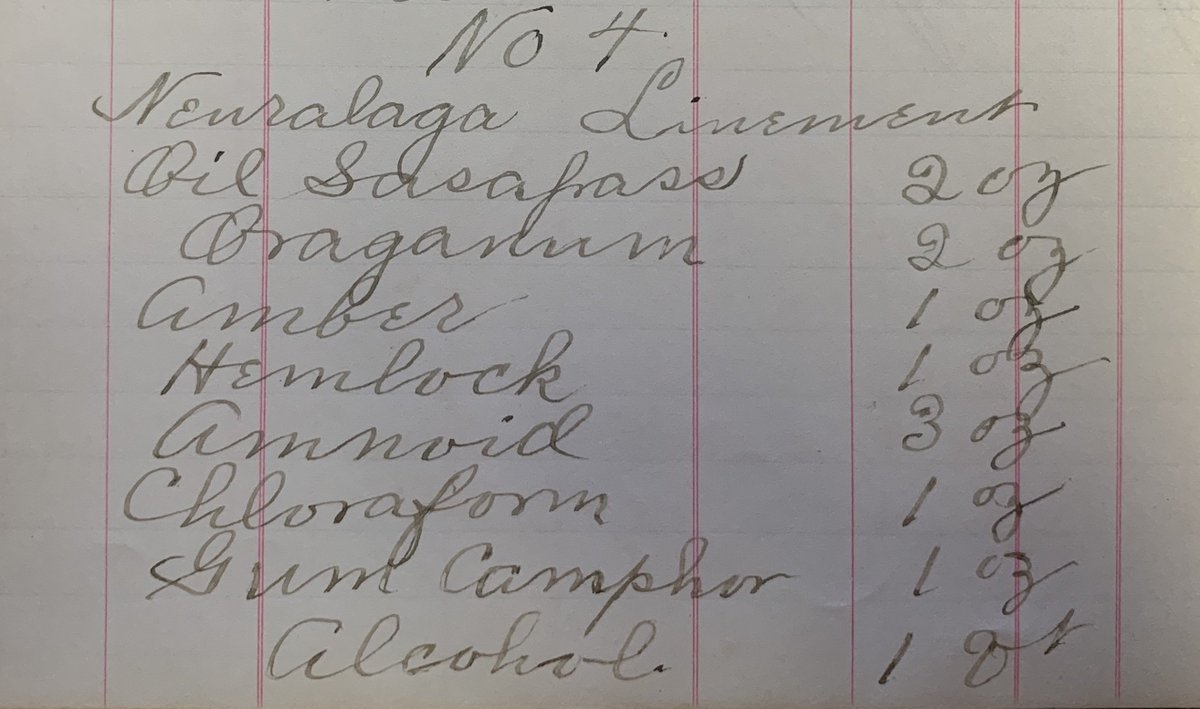 No 4.
Neuralaga Linement
Oil Sasafrass 2 oz
Oraganum 2 oz
Amber 1 oz
Hemlock 1 oz
Amnoid 3 oz
Chloraform 1 oz
Gum Camphor 1 oz
Alcohol. 1 qt